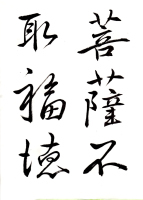 菩薩不
取福德